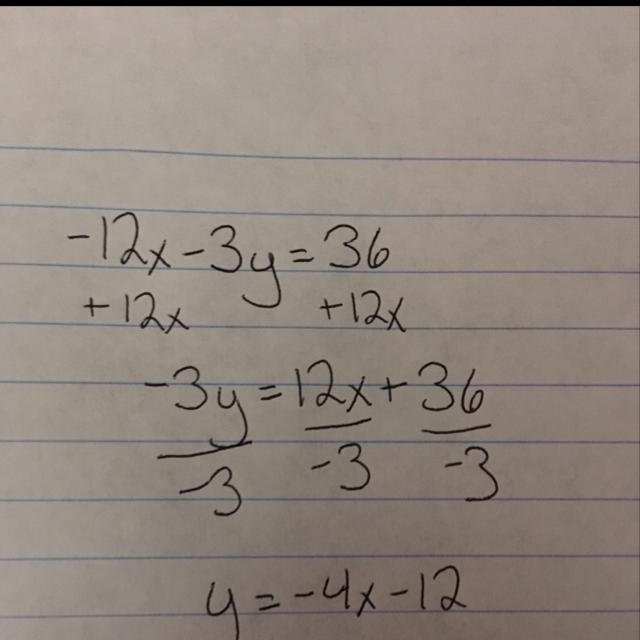 -12x-3y=36
+12x +12x
-3y=12x+36
-3 -3 -3
y=-4x-12